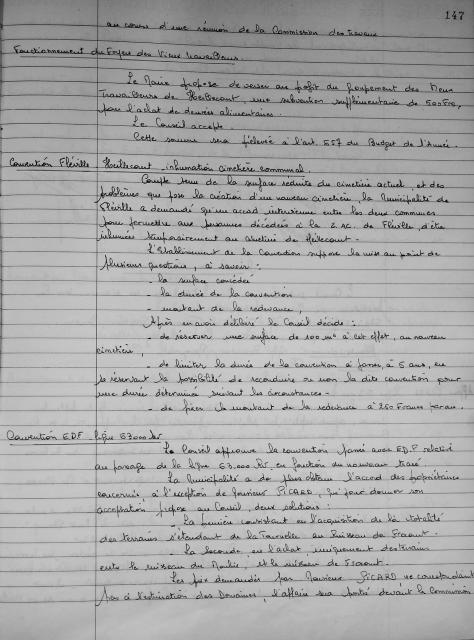 147
au cours d'une réunion de la Commission des travaux
Fonctionnement du Foyer des Vieux Travailleurs.
Le Maire propose de verser au profit du groupement des Vieux
Travailleurs de Heillecourt, une subvention supplémentaire de 500 Frs,
pour l'achat de denrées alimentaires.
Le Conseil accepte.
Cette somme sera prélevée à l'art. 657 du Budget de l'Année.
Convention Fléville Heillecourt inhumation cimetière communal.
Compte tenu de la surface réduite du cimetière actuel, et des
problèmes que pose la création d'un nouveau cimetière, la Municipalité de
Fléville a demandé qu'un accord intervienne entre les deux communes
pour permettre aux personnes décédées à la Z.AC. de Fléville, d'être
inhumées temporairement au cimetière de Heillecourt.
L'Etablissement de la Convention suppose la mise au point de
plusieurs questions, à savoir :
- la surface concédée
- la durée de la convention
- montant de la redevance,
Après en avoir délibéré le Conseil décide :
- de réserver une surface de 100 m² à cet effet, au nouveau
cimetière,
- de limiter la durée de la convention à passer, à 5 ans, en
se réservant la possibilité de reconduire ou non la dite convention pour
une durée déterminée suivant les circonstances -
- de fixer le montant de la redevance à 250 Francs par an.
Convention E.D.F. ligne 63.000 kv
Le Conseil approuve la convention passée avec E.D.F relative
au passage de la ligne 63.000 kv. en fonction du nouveau tracé.
La Municipalité a de plus obtenu l'accord des propriétaires
concernés, à l'exception de Monsieur PICARD, qui pour donner son
acceptation propose au Conseil, deux solutions :
- La première consistant en l'acquisition de la totalité
des terrains s'étendant de la au Ruisseau de Fracourt.
- La seconde en l'achat, uniquement des terrains
entre le ruisseau du et le ruisseau de Fracourt.
Les prix demandés par Monsieur PICARD ne correspondant
pas à l'estimation des Domaines, l'affaire sera portée devant la Commission